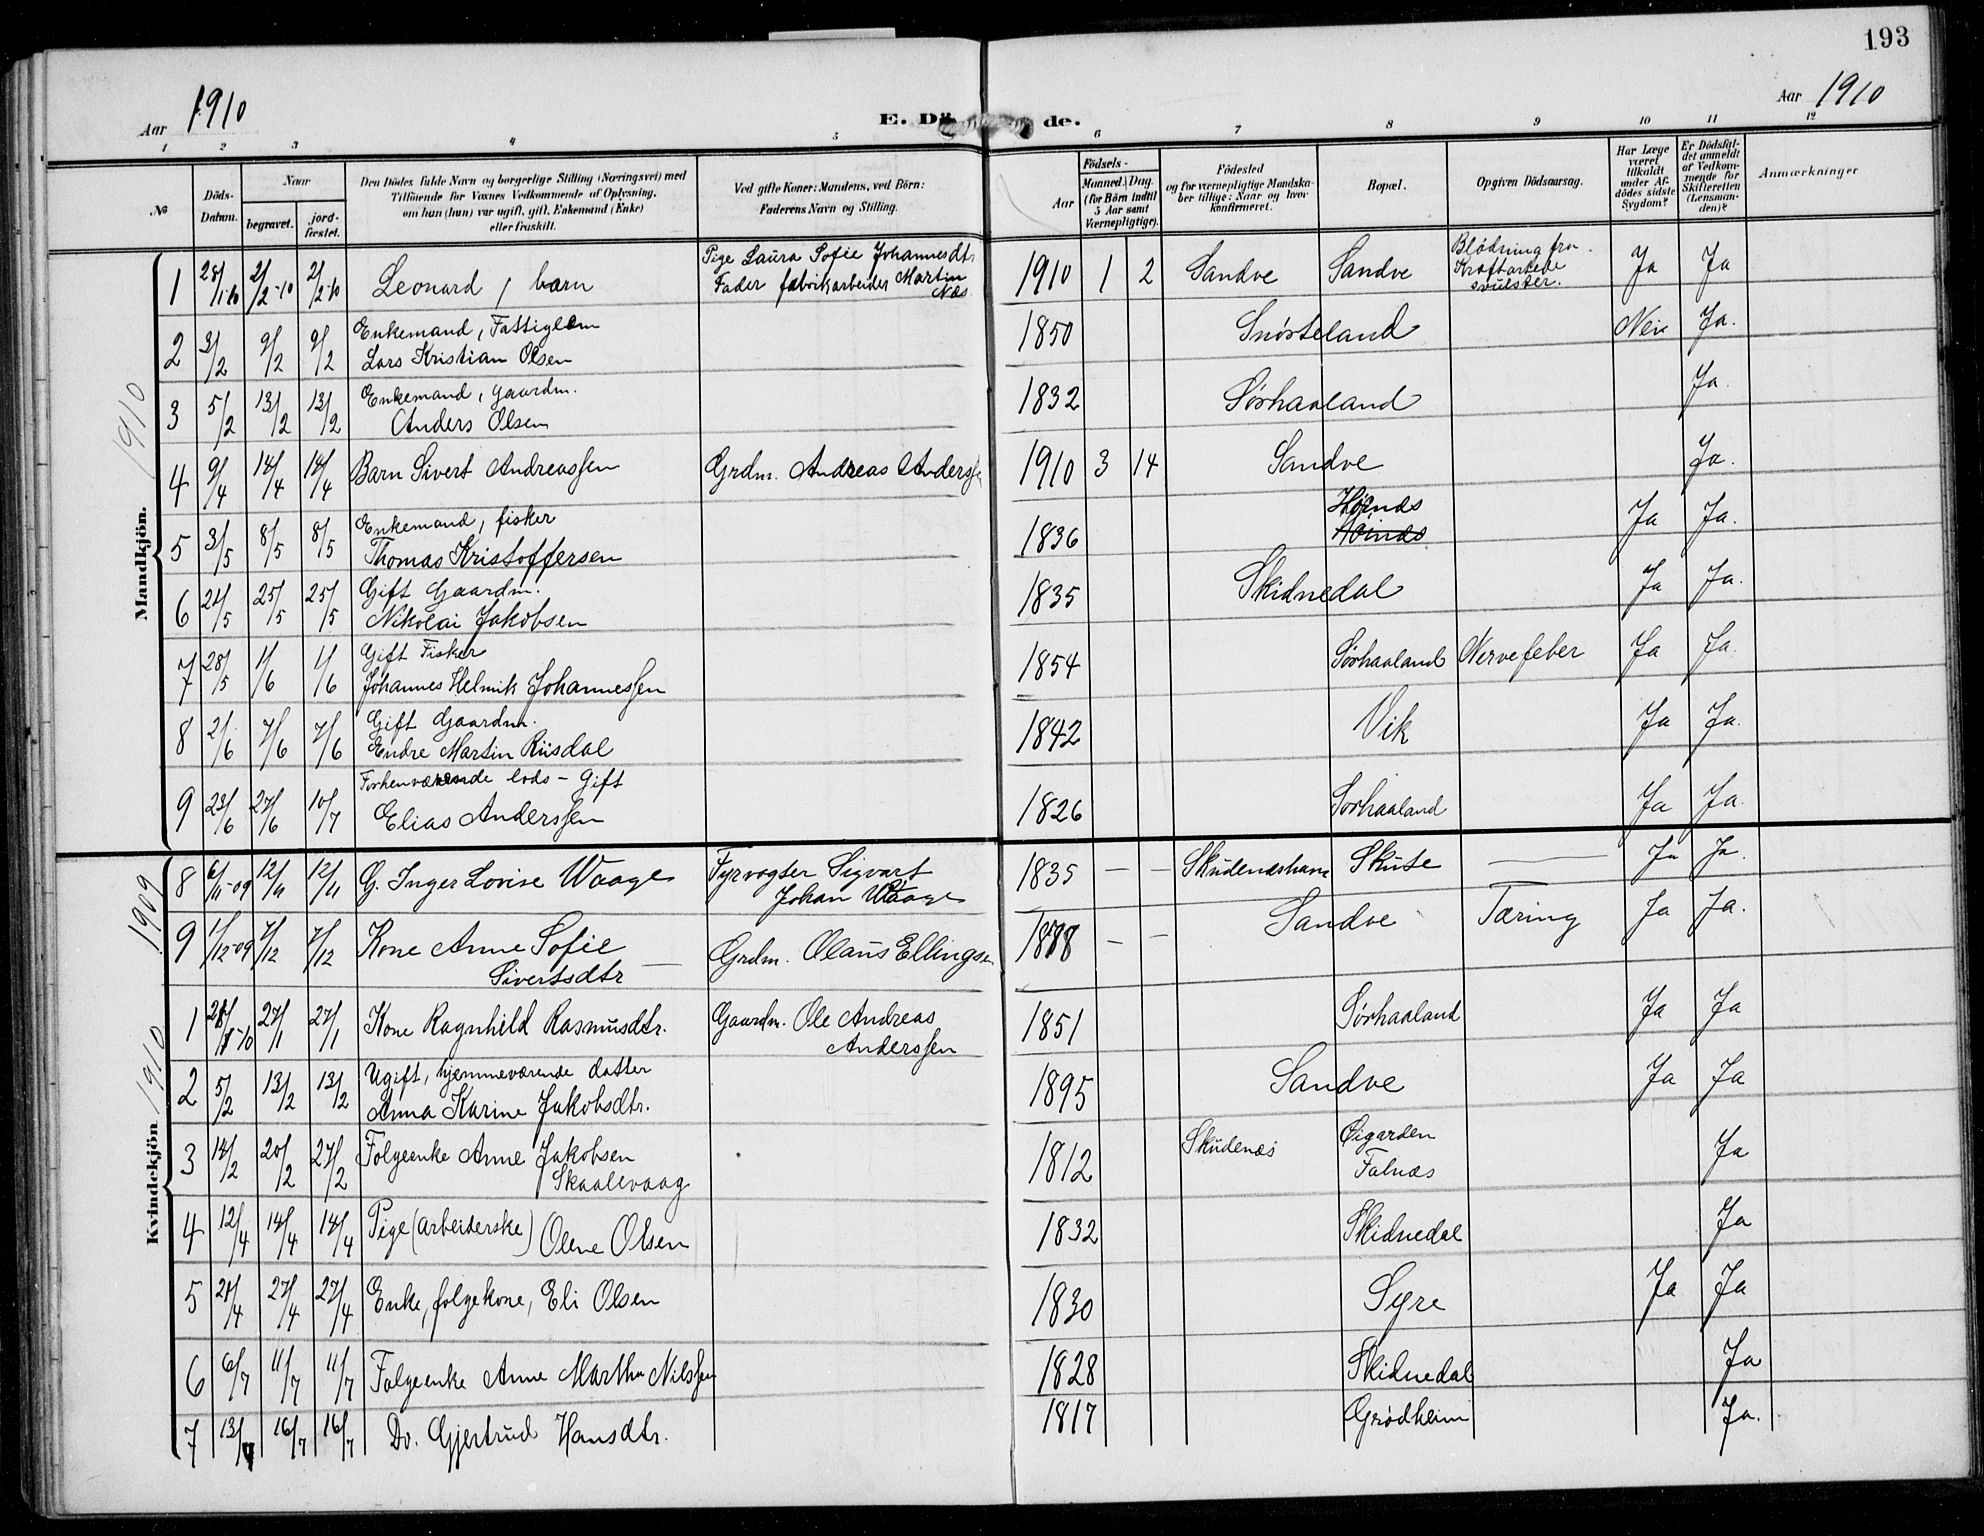 193
Aar 1910
E. Dö de.
Aar 1910
1 2 3 4 5 6 7 8 9 10 11 12
No
Döds-Datum.
Naar
begravet.
jord-fæstet.
Den Dödes fulde Navn og borgerlige Stilling (Næringsvei) med
Tilföiende for Voxnes Vedkommende af Oplysning,
om han (hun) var ugift, gift, Enkemand (Enke)
eller fraskilt.
Ved gifte Koner: Mandens, ved Börn:
Faderens Navn og Stilling.
Födsels-
Aar
Maaned. Dag.
(for Börn indtil
5 Aar samt
Værnepligtige).
Födested
og for værnepligtige Mandska-
ber tillige: Naar og hvor
konfirmeret.
Bopæl.
Opgiven Dödsaarsag.
Har Læge
været
tilkaldt
under Af-
dödes sidste
Sygdom?
Er Dödsfal-
det anmeldt
af Vedkom-
mende for
Skifteretten
(Lensman-
den)?
Anmærkninger
Mandkjön. 1910
1 28/1-10 2/2-10 2/2-10 Leonard, barn Pige Laura Sofie Johannesdtr Fader fabrikarbeider Martin Næs 1910 1 2 Sandve Sandve Blødning fra Kraftartede svulster. Ja Ja
2 3/2 9/2 9/2 Enkemand, Fattiglem Lars Kristian Olsen 1850 Snørteland Nei Ja.
3 5/2 13/2 13/2 Enkemand, gaardm. Anders Olsen 1832 Sørhaaland Ja.
4 9/4 14/4 14/4 Barn Sivert Andreassen Grdm. Andreas Anderss 1910 3 14 Sandve Ja.
5 3/5 8/5 8/5 Enkemand, fisker Thomas Kristoffersen 1836 Høinæs Ja Ja.
6 21/5 25/5 25/5 Gift Gaardm. Nikolai Jakobsen 1835 Skidnedal Ja Ja.
7 28/5 1/6 1/6 Gift Fisker Johannes Helmik Johannessen 1854 Sørhaaland Nervefeber Ja Ja.
8 2/6 7/6 7/6 Gift Gaardm. Endre Martin Riisdal 1842 Vik Ja Ja.
9 23/6 27/6 10/7 Forhenværende lods - Gift Elias Anderssen 1826 Sørhaaland Ja Ja.
Kvindekjön. 1909
8 6/11-09 12/11 12/11 G. Inger Lovise Waage Fyrvogter Sigvart Johan Waage 1835 — — Skudeneshavn Skute — Ja Ja.
9 1/12-09 7/12 7/12 Kone Anne Sofie Sivertsdtr — Grdm. Olaus Ellingsen 1878 — — Sandve Tæring Ja Ja.
1910
1 21/1-10 27/1 27/1 Kone Ragnhild Rasmusdtr. Gaardm. Ole Andreas Anderssen 1851 Sørhaaland Ja Ja
2 5/2 13/2 13/2 Ugift, hjemmeværende datter Anna Karine Jakobsdtr. 1895 Sandve Ja Ja
3 14/2 20/2 27/2 Følgeenke Anne Jakobsen Skaalevaag 1812 Skudenæs Øigarden Falnæs Ja
4 12/4 14/4 14/4 Pige (arbeiderske) Olene Olsen 1832 Skidnedal Ja
5 21/4 27/4 27/4 Enke, følgekone, Eli Olsen 1830 Syre Ja Ja
6 6/7 11/7 11/7 Følgeenke Anne Martha Nilssen 1828 Skidnedal Ja
7 13/7 16/7 16/7 Do. Gjertrud Hansdtr. 1817 Grødheim Ja.